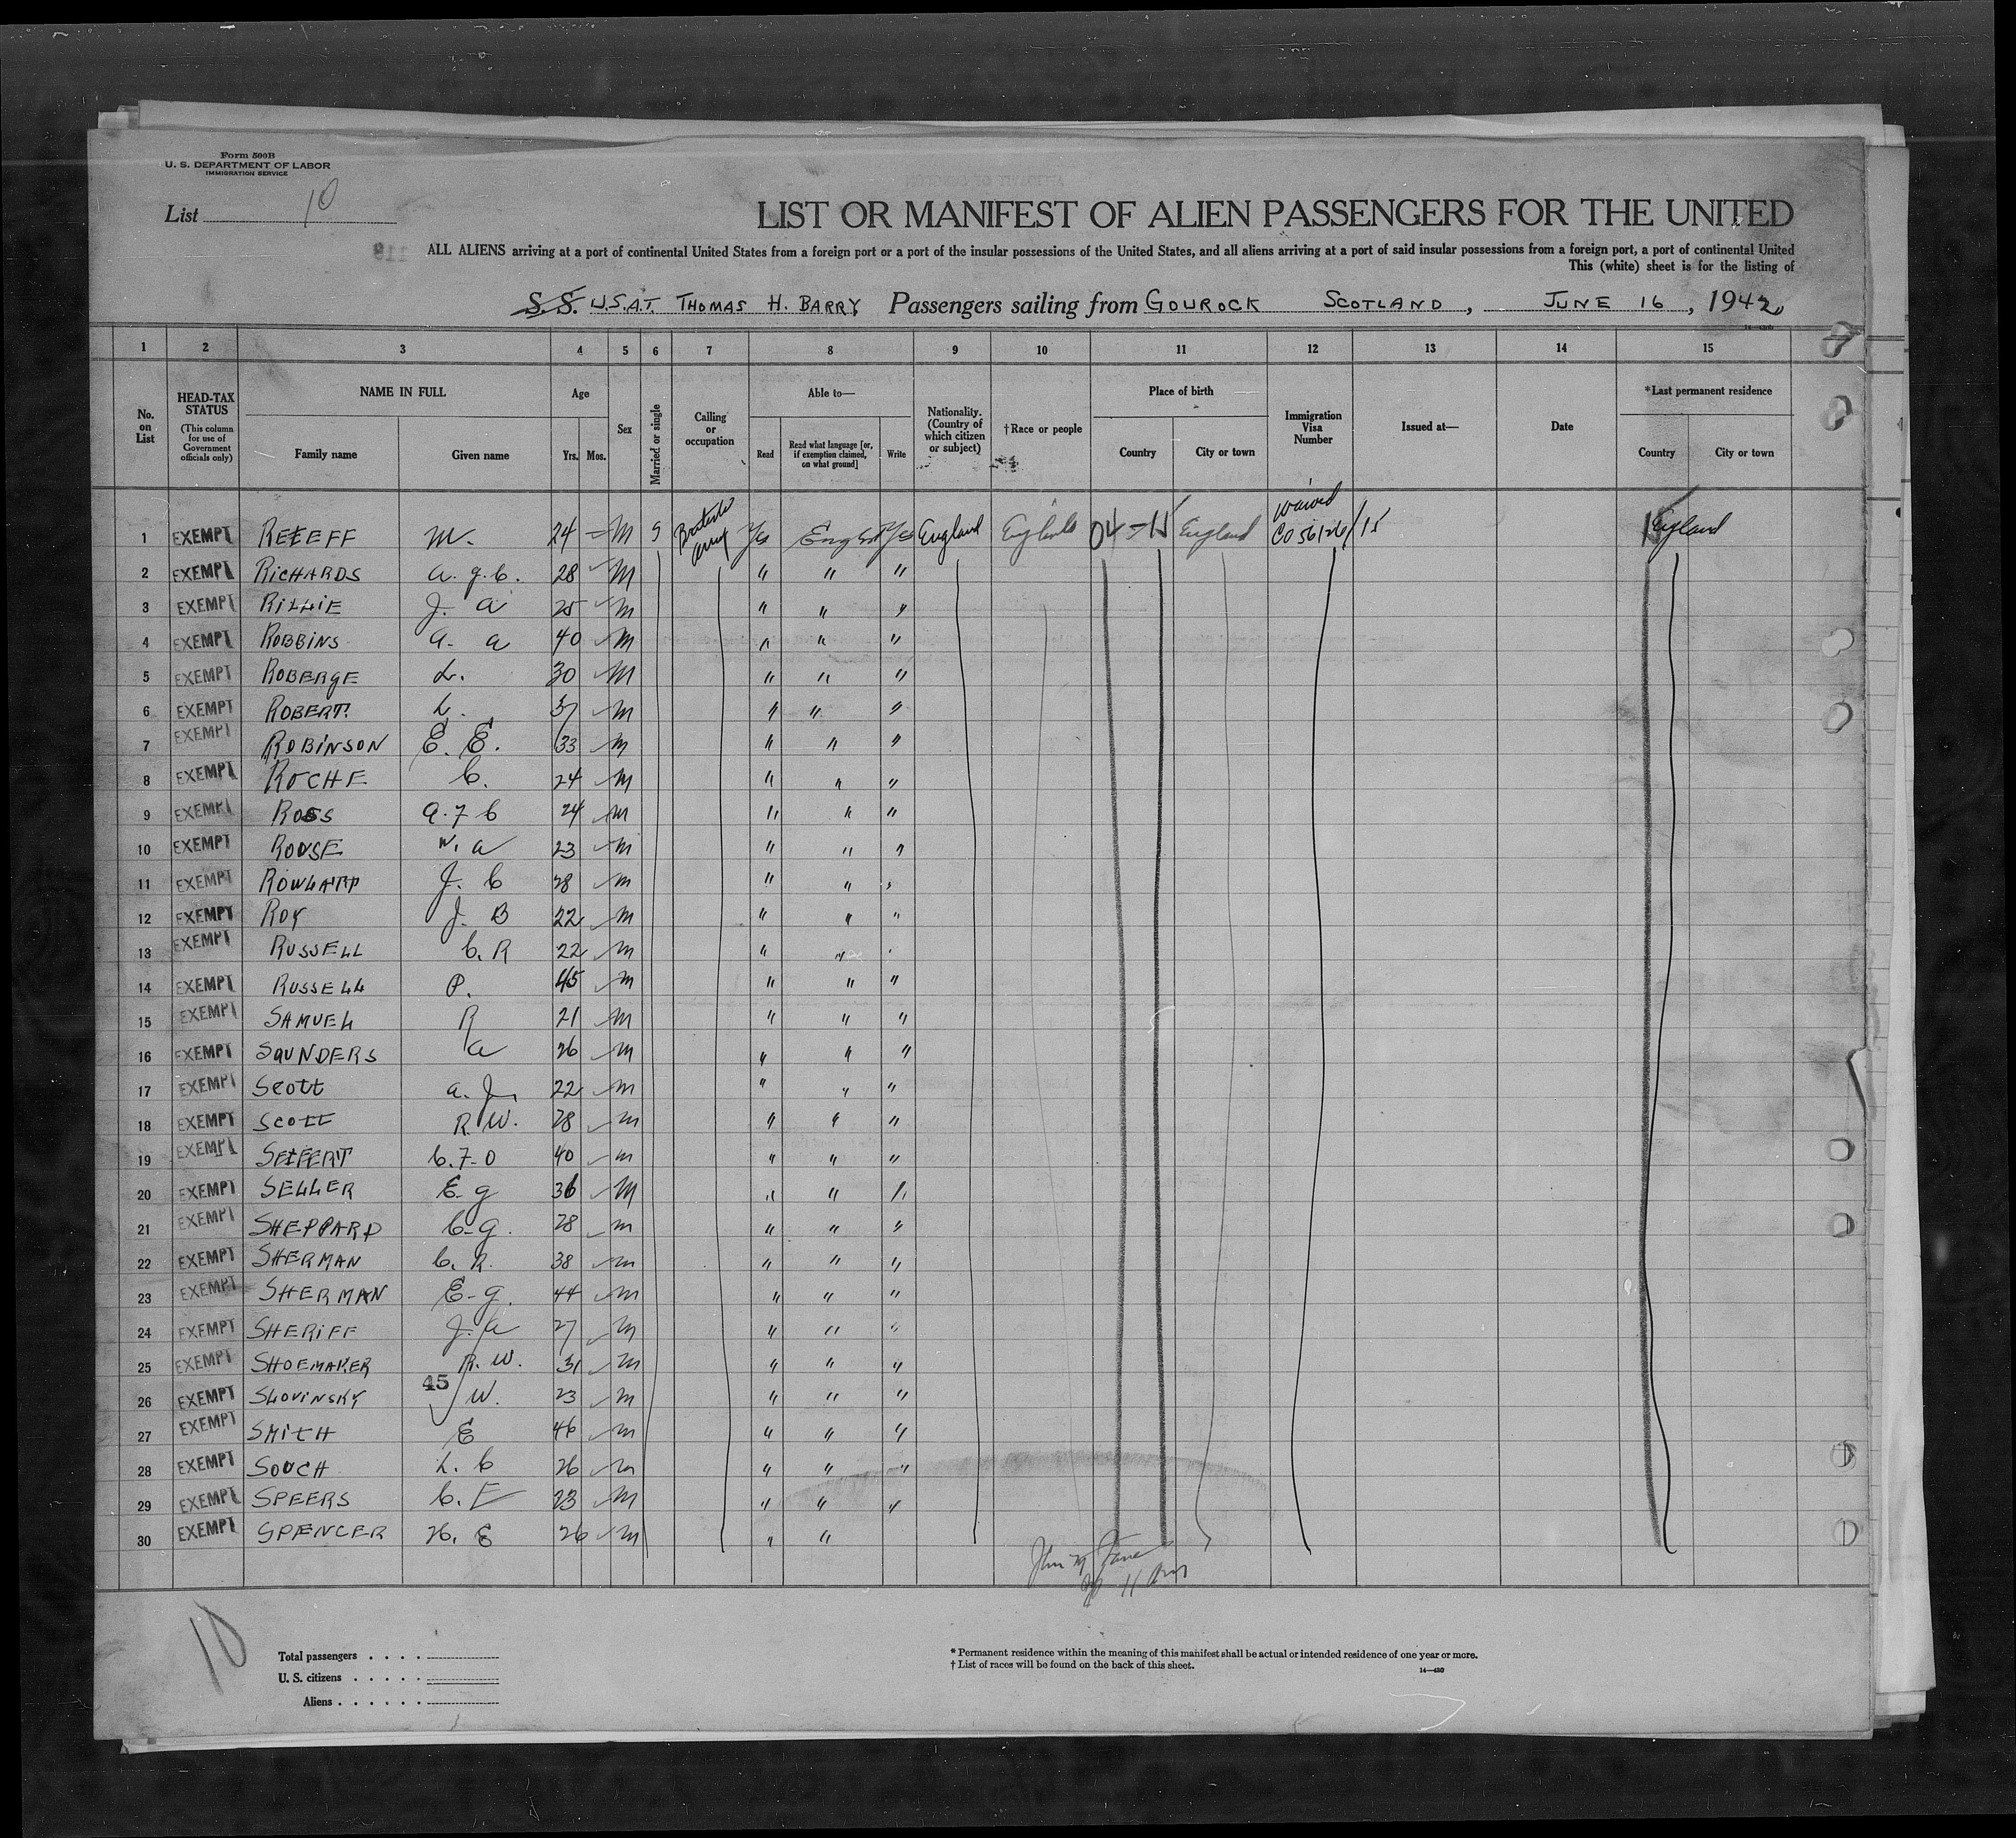 Form 500B
U. S. DEPARTMENT OF LABOR
IMMIGRATION SERVICE
List 10
LIST OR MANIFEST OF ALIEN PASSENGERS FOR THE UNITED
ALL ALIENS arriving at a port of continental United States from a foreign port or a port of the insular possessions of the United States, and all aliens arriving at a port of said insular possessions from a foreign port, a port of continental United
This (white) sheet is for the listing of
S. S. U.S.A.T. THOMAS H. BARRY Passengers sailing from GOUROCK SCOTLAND, JUNE 16, 1942
1 2 3 4 5 6 7 8 9 10 11 12 13 14 15
No. on List
HEAD-TAX STATUS (This column for use of Government officials only)
NAME IN FULL Family name Given name
Age Yrs. Mos.
Sex
Married or single
Calling or occupation
Able to— Read Read what language [or, if exemption claimed, on what ground] Write
Nationality. (Country of which citizen or subject)
†Race or people
Place of birth Country City or town
Immigration Visa Number
Issued at—
Date
*Last permanent residence Country City or town
1 EXEMPT REIEFF M. 24 M S British Army Yes English Yes England English 04-15 England waived CO 56126/15 15 England
2 EXEMPT RICHARDS A. G. C. 28 M " " "
3 EXEMPT RILLIE J. A 25 M " " "
4 EXEMPT ROBBINS A. A 40 M " " "
5 EXEMPT ROBERGE L. 30 M " " "
6 EXEMPT ROBERT. L. 37 M " " "
7 EXEMPT ROBINSON E. E. 33 M " " "
8 EXEMPT ROCHE C. 24 M " " "
9 EXEMPT ROSS A. F C 24 M " " "
10 EXEMPT ROUSE W. A 23 M " " "
11 EXEMPT ROWLATT J. C 28 M " "
12 EXEMPT ROY J. B 22 M " " "
13 EXEMPT RUSSELL C. R 22 M " "
14 EXEMPT RUSSELL P. 45 M " " "
15 EXEMPT SAMUEL R 21 M " " "
16 EXEMPT SAUNDERS A 26 M " " "
17 EXEMPT SCOTT A. J. 22 M " " "
18 EXEMPT SCOTT R. W. 28 M " " "
19 EXEMPT SEIFERT C. F-O 40 M " " "
20 EXEMPT SELLER E-G 36 M " " "
21 EXEMPT SHEPPARD C-G. 28 M " " "
22 EXEMPT SHERMAN C. R. 38 M " " "
23 EXEMPT SHERMAN E-G. 44 M " " "
24 EXEMPT SHERIFF J. A 27 M " " "
25 EXEMPT SHOEMAKER R. W. 31 M " " "
26 EXEMPT SLOVINSKY 45 W. 23 M " " "
27 EXEMPT SMITH E 46 M " " "
28 EXEMPT SOUCH L. C 26 M " " "
29 EXEMPT SPEERS C. F 23 M " " "
30 EXEMPT SPENCER H. E 26 M " "
10
Total passengers
U. S. citizens
Aliens
* Permanent residence within the meaning of this manifest shall be actual or intended residence of one year or more.
† List of races will be found on the back of this sheet.
14—430